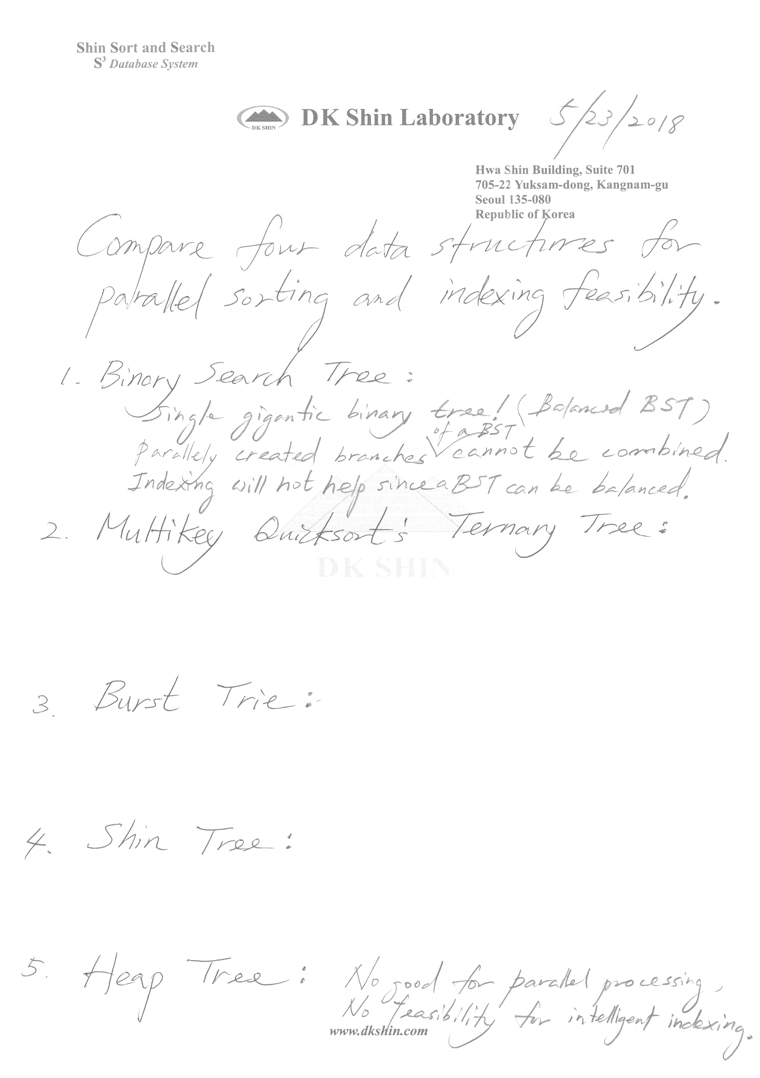 Shin Sort and Search
S³ Database System
DK SHIN
DK Shin Laboratory
5/23/2018
Hwa Shin Building, Suite 701
705-22 Yuksam-dong, Kangnam-gu
Seoul 135-080
Republic of Korea
Compare four data structures for
parallel sorting and indexing feasibility.
1. Binary Search Tree:
Single gigantic binary tree! (Balanced BST)
of a BST
Parallely created branches cannot be combined.
Indexing will not help since a BST can be balanced.
2. Multikey Quicksort's Ternary Tree:
DK SHIN
3. Burst Trie:
4. Shin Tree:
5. Heap Tree: No good for parallel processing,
No feasibility for intelligent indexing.
www.dkshin.com